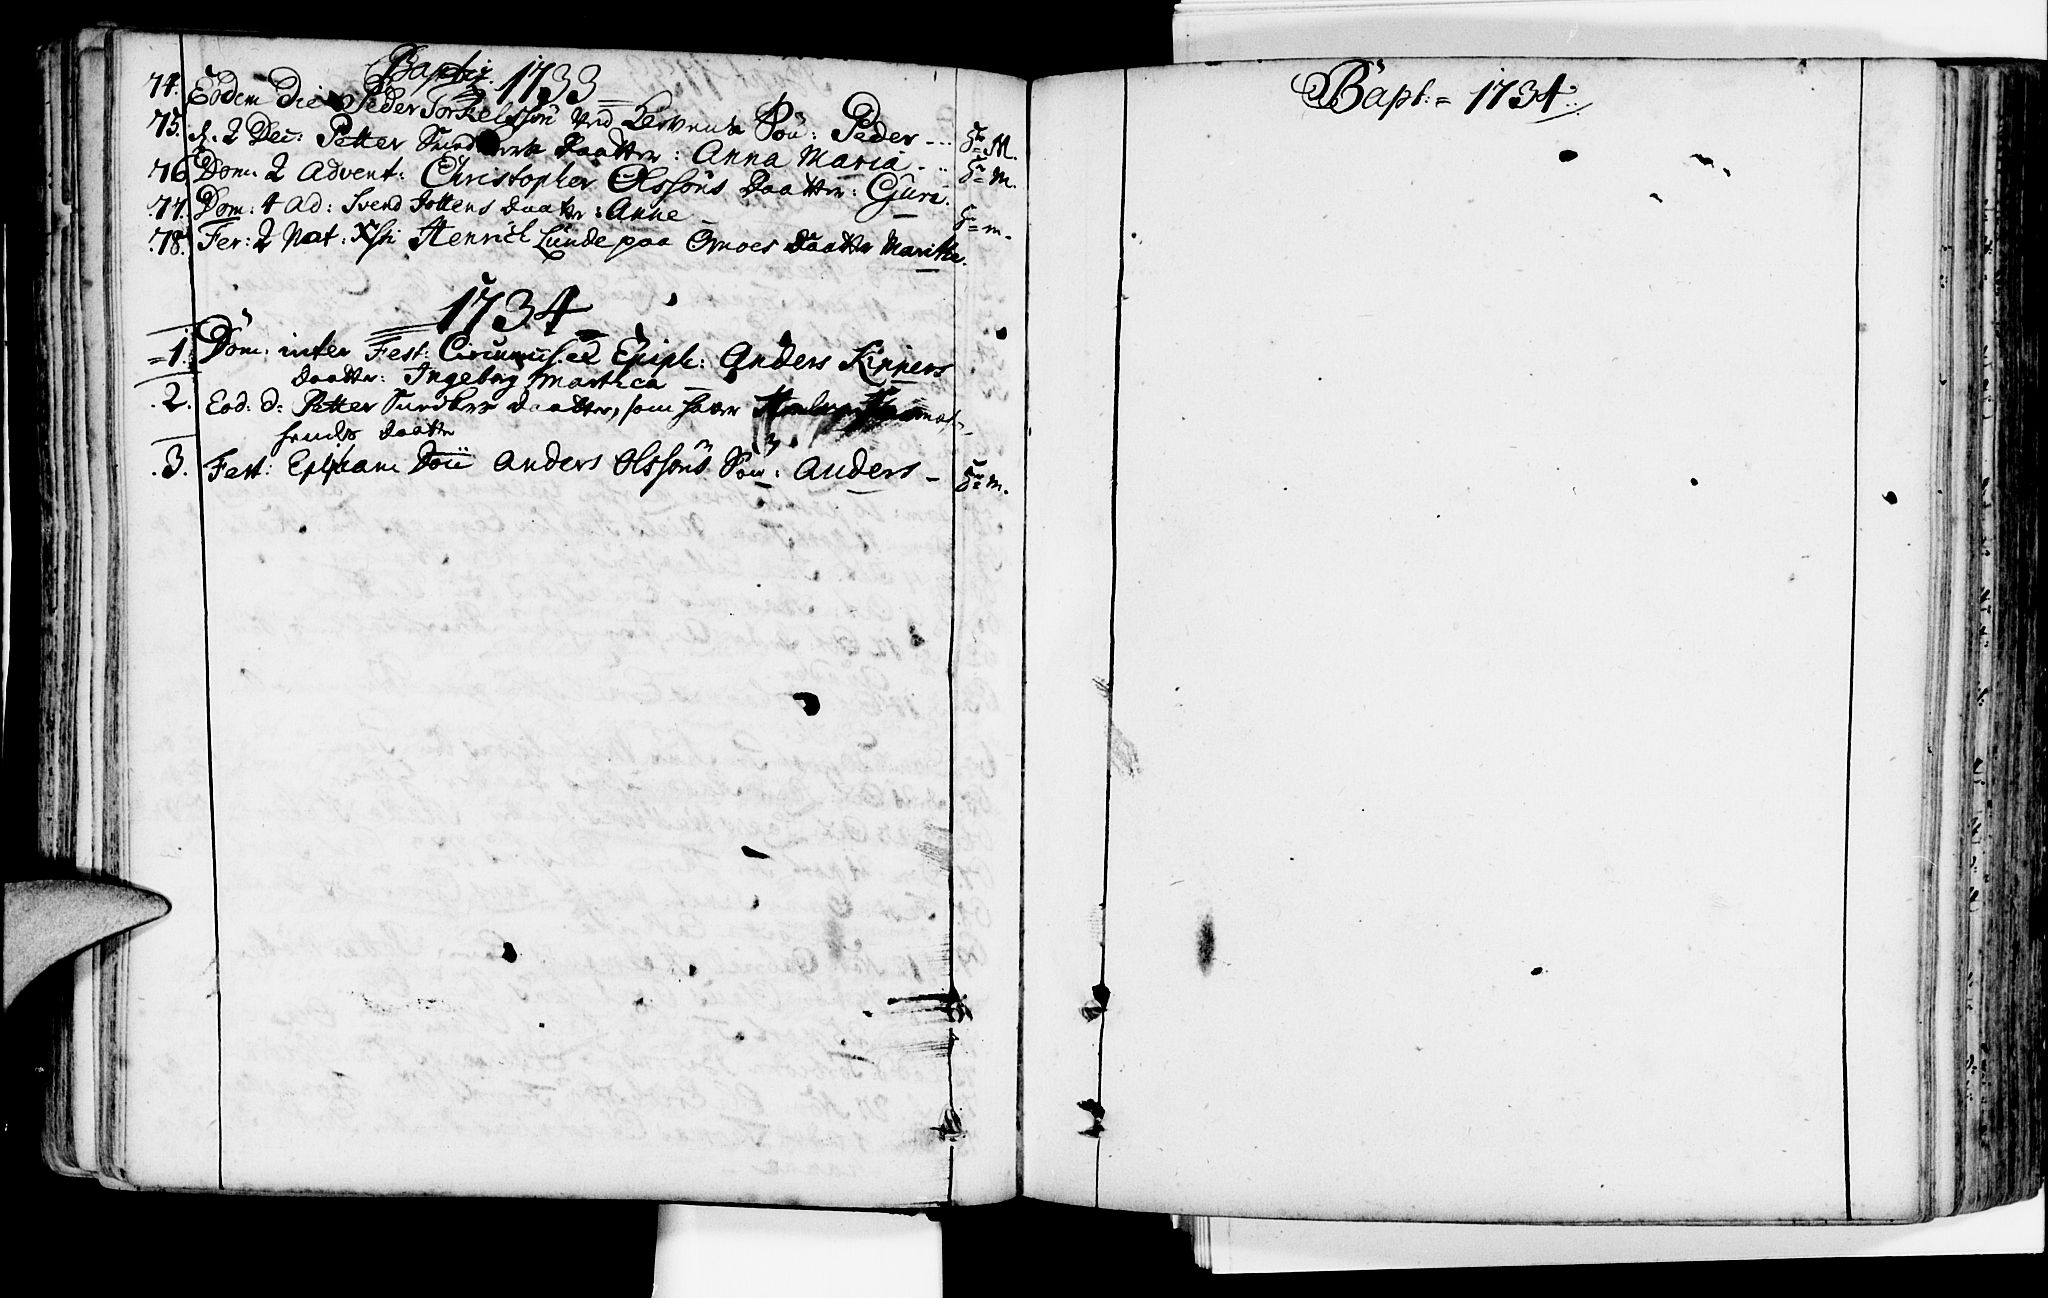 Baptiz. 1733
74. Eodem Die Peder Torkelssøn ved Søn: Peder - ..
75. d. 2 Dec: Petter Daatter: Anna Maria - .. M.
76 Dom: 2 Advent: Christopher Olssøns Daatter: Guri. m.
77. Dom: 4 Ad: Svend Daatter: Anne
78. Fer: 2 Nat: Xsti Henrich Lunde paa Omoes Daatter Marithe. m.
1734
1. Dom: inter Fest: Circumcis. et Epiph: Anders Kippers
Daatter: Ingeborg
2. Eod: d: Petter Daatter, som haver
Daatter
3. Fest: Epiphan: Anders Olssøns Søn: Anders - m.
Bapt: = 1734: